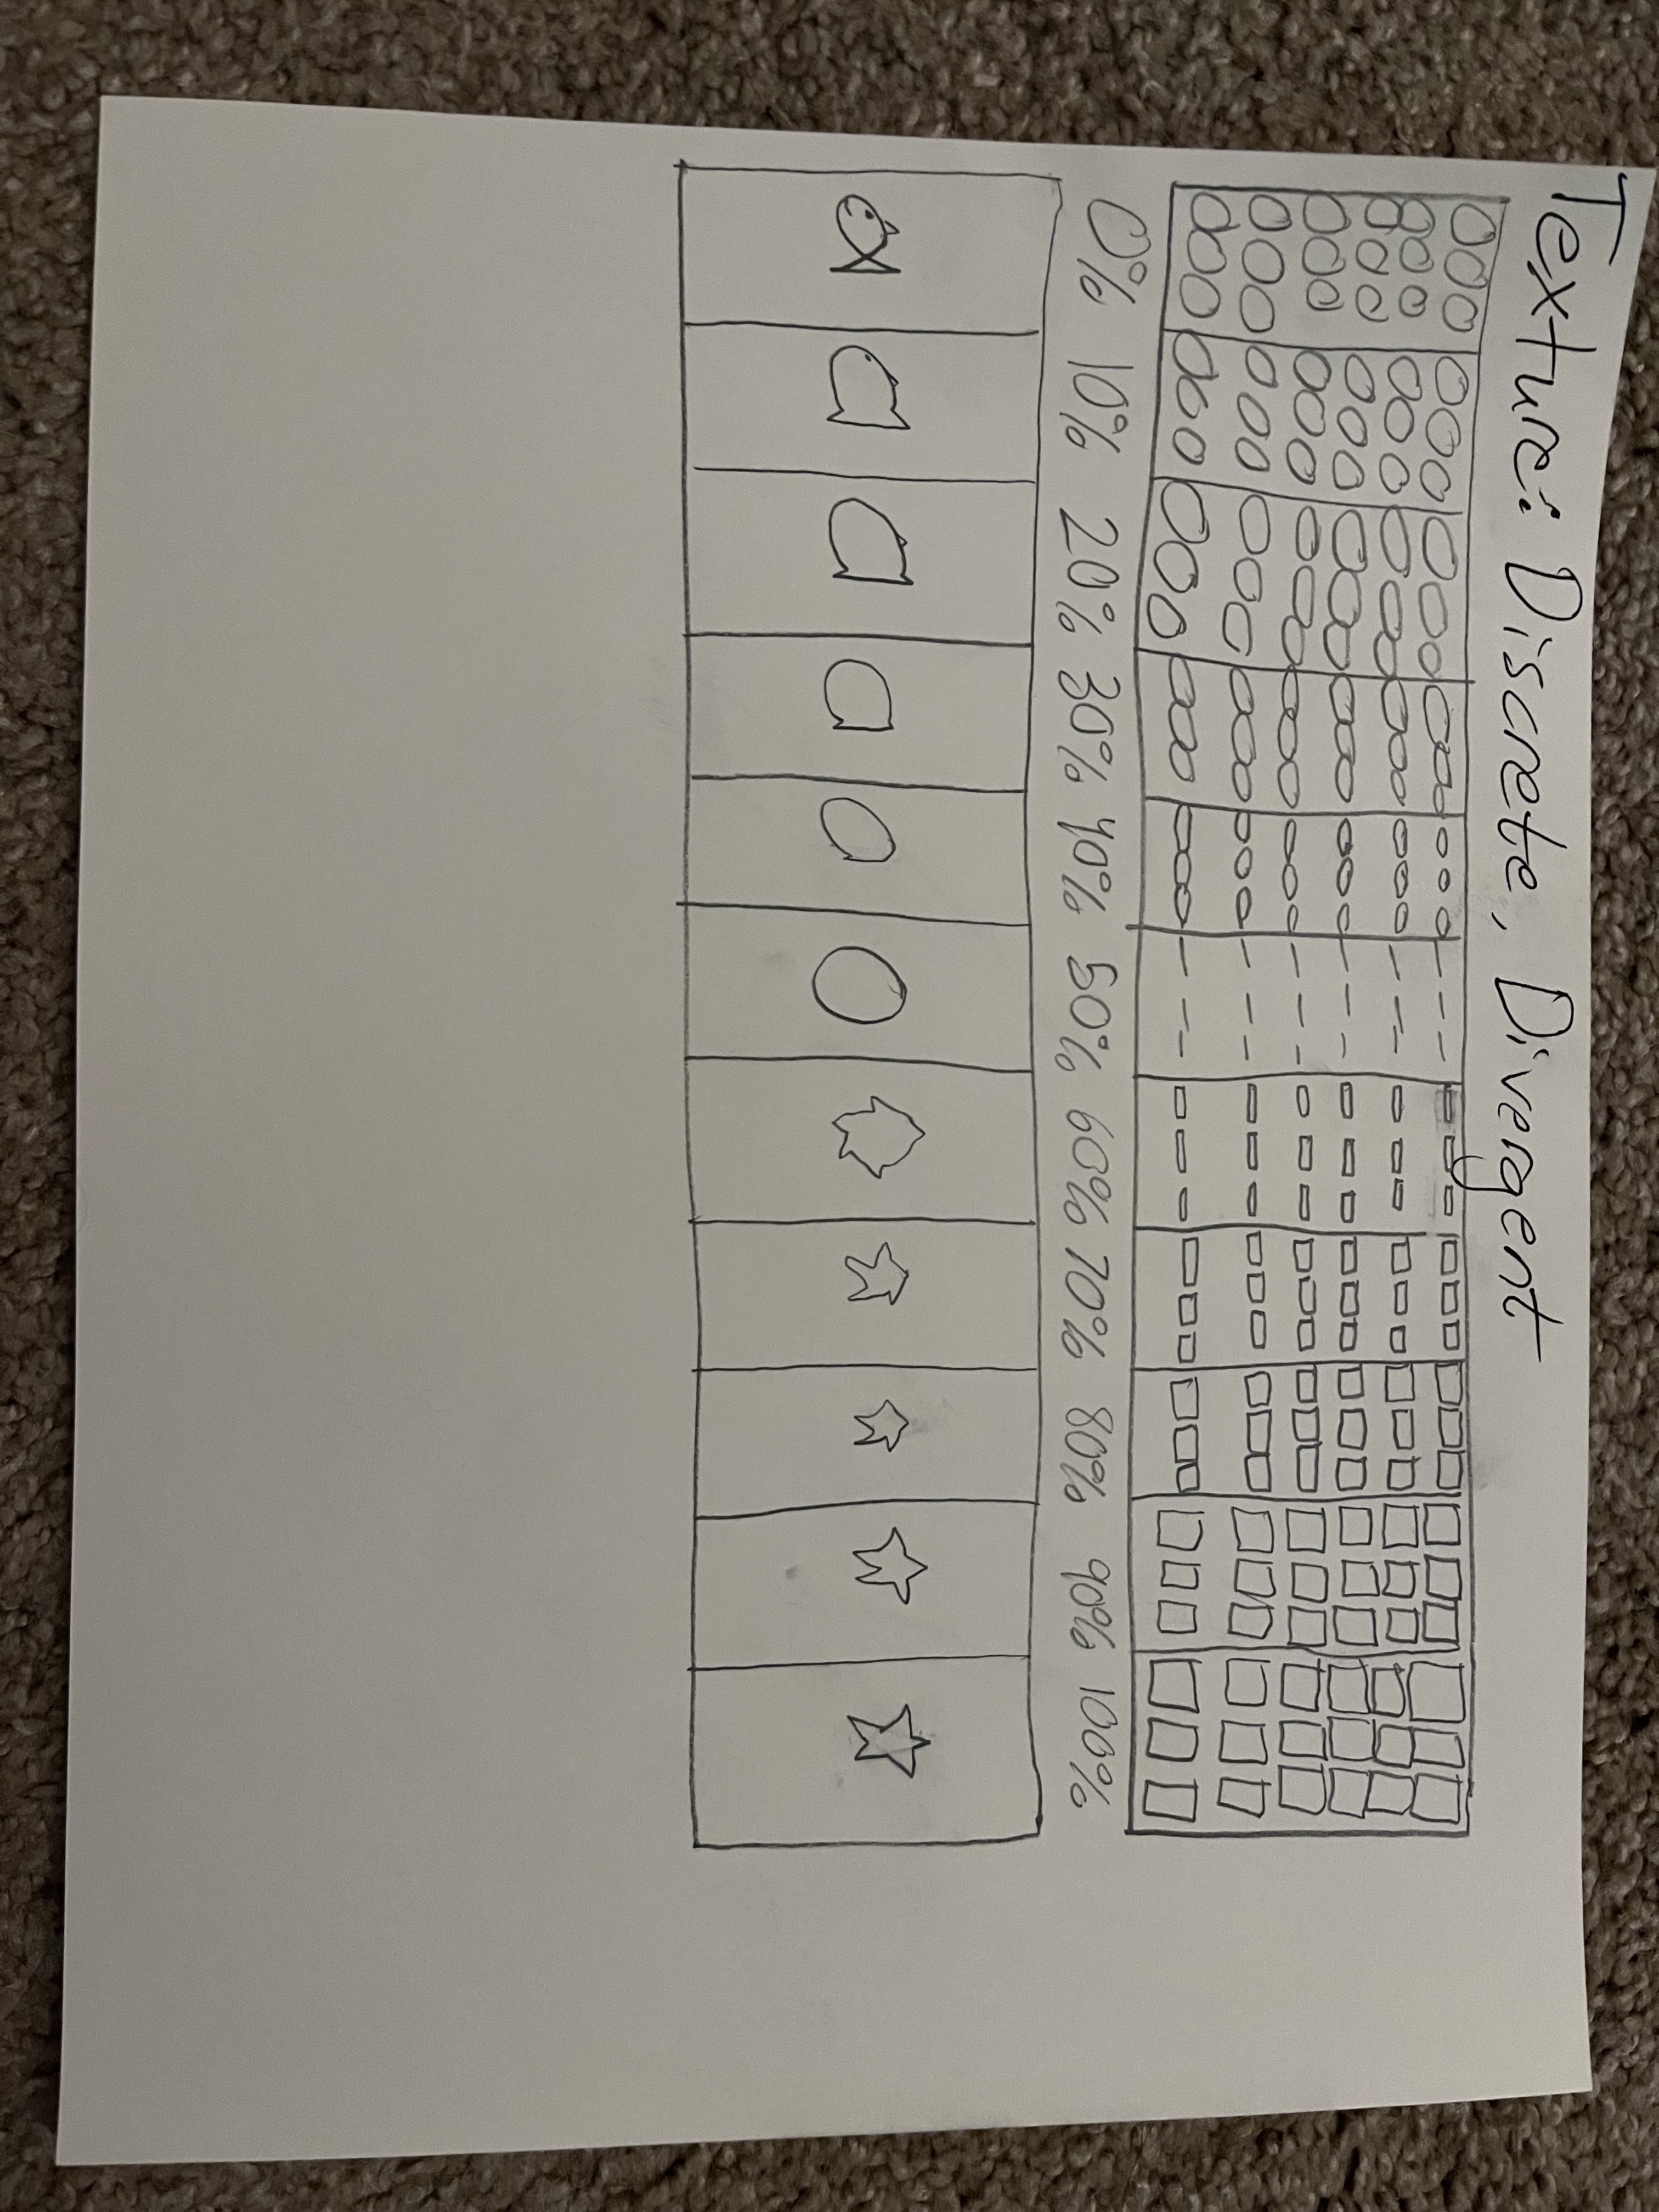 Texture: Discrete, Divergent
0% 10% 20% 30% 40% 50% 60% 70% 80% 90% 100%